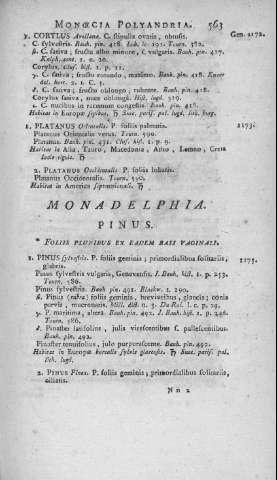 MONŒCIA POLYANDRIA. 563
3. CORYLUS Avellana. C. stipulis ovatis, obtusis. Gen. 2172.
α. C. sylvestris. Bauh. pin. 418. Lob. ic. 192. Tourn. 582.
β. C. sativa, fructu albo minore, f. vulgaris. Bauh. pin. 417.
Kniph. cent. 1. n. 20.
Corylus. Cluf. hist. 1. p. 11.
γ. C. sativa, fructu rotundo, maximo. Bauh. pin. 418.
δ. C. sativa, fructu oblongo, rubente. Bauh. pin. 418.
Corylus sativa,
ε. C. nucibus in racemum congestis. Bauh. pin. 418.
Habitat in Europæ sepibus. ♄
1. PLATANUS Orientalis. P. foliis palmatis. 2173.
Platanus Orientalis verus. Tourn. 590.
Platanus. Bauh. pin. 431. Cluf. hist. 1. p. 9.
Habitat in Asia, Tauro, Macedonia, Atho, Lemno, Creta
locis riguis. ♄
2. PLATANUS Occidentalis. P. foliis lobatis.
Platanus Occidentalis. Tourn. 590.
Habitat in America septentrionali. ♄
MONADELPHIA.
PINUS.
* FOLIIS PLURIBUS EX EADEM BASI VAGINALI.
1. PINUS sylvestris. P. foliis geminis; primordialibus solitariis, 2175.
glabris.
Pinus sylvestris vulgaris, Genevensis. J. Bauh. hist. 1. p. 253.
Tourn. 586.
Pinus sylvestris. Bauh. pin. 491. Blackw. t. 190.
β. Pinus (rubra) foliis geminis, brevioribus, glaucis; conis
parvis, mucronatis. Mill. dict. n. 3. Du Roi. l. c. p. 29.
γ. P. maritima, altera. Bauh. pin. 492. J. Bauh. hist. 1. p. 246.
Tourn. 586.
δ. Pinaster latifolius, julis virescentibus f. pallescentibus.
Bauh. pin. 492.
Pinaster tenuifolius, julo purpurascente. Bauh. pin. 492.
Habitat in Europæ borealis sylvis glareosis. ♄
2. PINUS Pinea. P. foliis geminis; primordialibus solitariis,
ciliatis.
N n 2